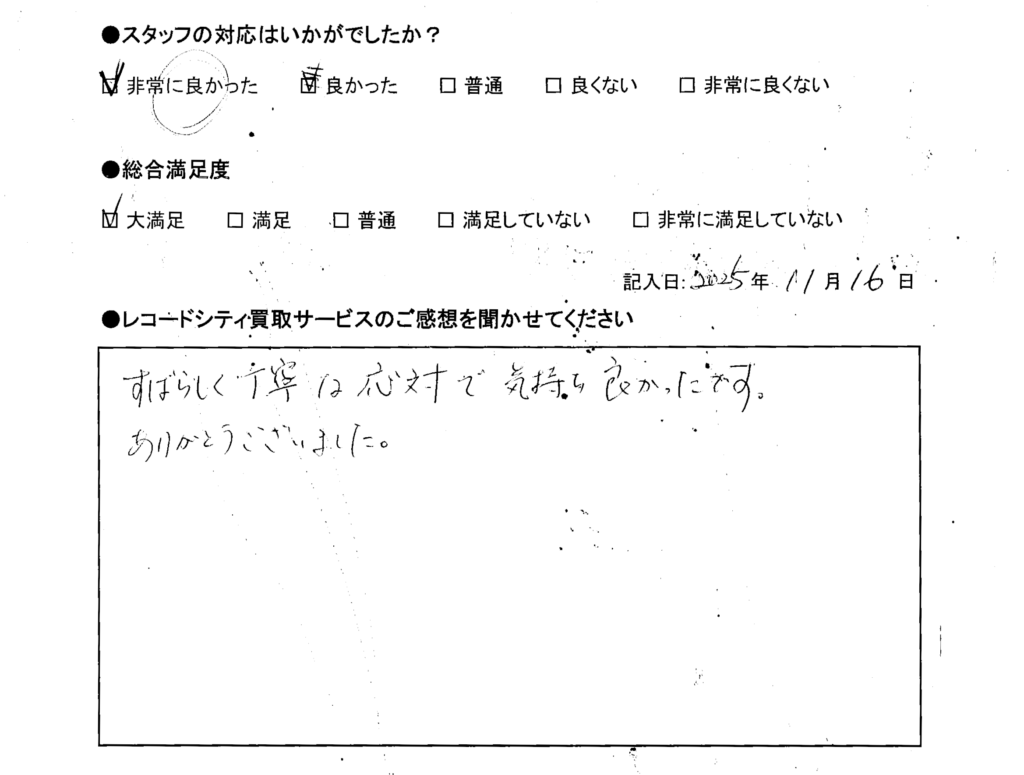 ●スタッフの対応はいかがでしたか？
☑ 非常に良かった ☑ 良かった □ 普通 □ 良くない □ 非常に良くない
●総合満足度
☑ 大満足 □ 満足 □ 普通 □ 満足していない □ 非常に満足していない
記入日:2025年 11月16日
●レコードシティ買取サービスのご感想を聞かせてください
すばらしく丁寧な応対で気持ち良かったです。
ありがとうございました。